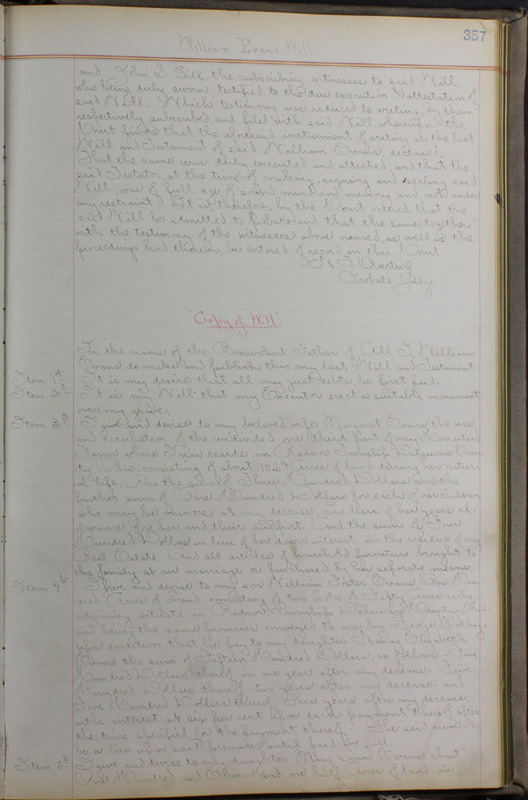 357
William Evans Will
and John B. Gill the subscribing witnesses to said Will,
who being duly sworn testified to the due execution & attestation of
said Will. Which testimony was reduced to writing, by them
respectively subscribed, and filed with said Will, whereupon the
Court finds that the aforesaid instrument of writing is the last
Will and Testament of said William Evans, deceased,
That the same was duly executed and attested, and that the
said Testator, at the time of making, signing and sealing said
Will, was of full age of sound mind and memory and not under
any restraint. It is, therefore, by the Court ordered, that the
said Will be admitted to Probate and that the same, together
with the testimony of the witnesses above named, as well as the
proceedings had therein, be entered of record in this Court
Probate Judge
"Copy of Will"
In the name of the Benevolent Father of All I, William
Evans do make and publish this my last Will and Testament.
Item 1st It is my desire that all my just debts be first paid.
Item 2d It is my Will that my Executor erect a suitable monument
over my grave.
Item 3d I give and devise to my beloved wife Margaret Evans the use
and occupation of the undivided one third part of my Homestead
Farm where I now reside in Radnor Township Delaware Coun-
ty Ohio, consisting of about 102 Acres of land during her natur-
al life. Also the sum of Three Hundred Dollars and the
further sum of One Hundred Dollars for each of our children
who may be minors at my decease, in lieu of her years al-
lowance for her and their support. And the sum of Four
Hundred Dollars in lieu of her dower interest in the residue of my
Real Estate. And all articles of household furniture brought to
the family at our marriage or purchased by her separate means.
Item 4th I give and devise to my son William Foster Evans One Hun-
dred Acres of land consisting of two Lots of Fifty Acres each,
adjoining, situate in Radnor Township Delaware County Ohio
and being the same premises conveyed to me by George
upon condition that he pay to my daughter Nancy Elizabeth
Evans the sum of Fifteen Hundred Dollars, as follows: Five
Hundred Dollars thereof in one year after my decease. Five
Hundred Dollars thereof two years after my decease and
Five Hundred Dollars thereof Three years after my decease
with interest at six per cent upon each payment thereof after
the time specified for the payment thereof. The said sum to
be a lien upon said premises until paid in full.
Item 5th I give and devise to my daughter Mary Ann Evans about
One Hundred and Eleven and one half Acres of land in